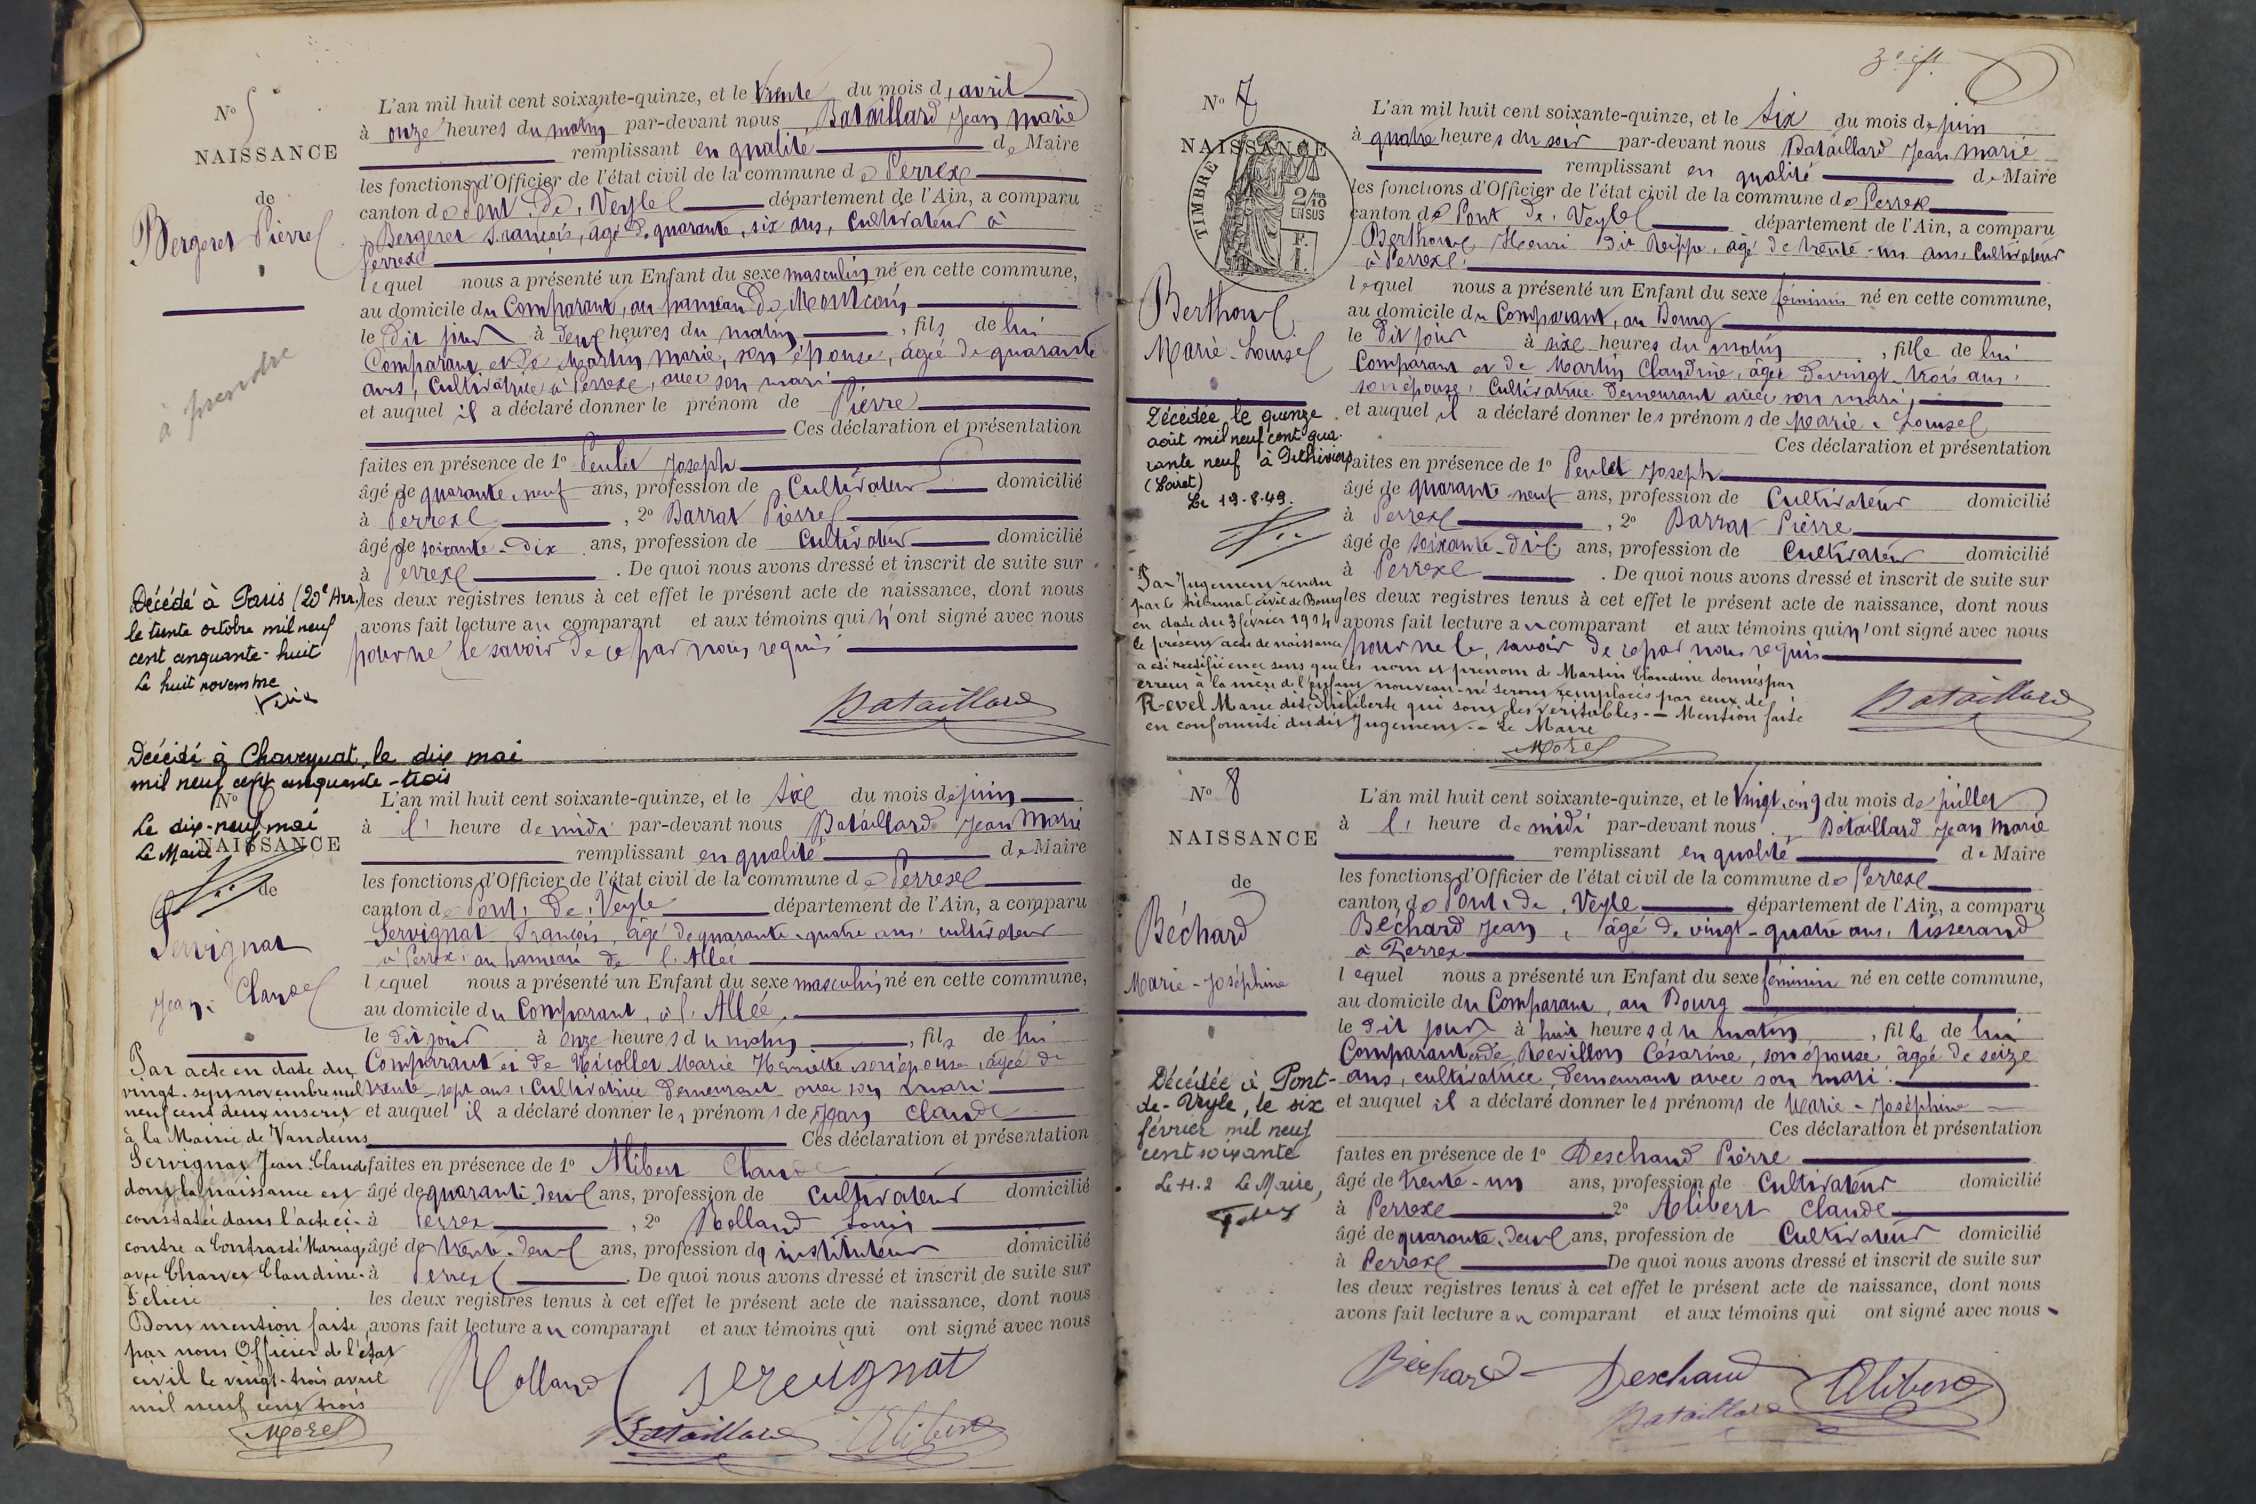 N° 5
NAISSANCE
de
Bergeret Pierre
à prendre
L'an mil huit cent soixante-quinze, et le trente du mois d'avril
à onze heures du matin par-devant nous Bataillard Jean Marie
remplissant en qualité de Maire
les fonctions d'Officier de l'état civil de la commune de Perrex
canton de Pont de Veyle département de l'Ain, a comparu
Bergeret François, âgé de quarante six ans, Cultivateur à
Perrex
lequel nous a présenté un Enfant du sexe masculin né en cette commune,
au domicile du Comparant, au hameau de Montcoin
le dit jour à deux heures du matin, fils de lui
Comparant et de Martin Marie, son épouse, âgée de quarante
ans, Cultivatrice à Perrex, avec son mari
et auquel il a déclaré donner le prénom de Pierre
Ces déclaration et présentation
faites en présence de 1° Peulet Joseph
âgé de quarante-neuf ans, profession de Cultivateur domicilié
à Perrex, 2° Barrat Pierre
âgé de soixante-dix ans, profession de Cultivateur domicilié
à Perrex. De quoi nous avons dressé et inscrit de suite sur
les deux registres tenus à cet effet le présent acte de naissance, dont nous
avons fait lecture au comparant et aux témoins qui n'ont signé avec nous
pour ne le savoir de ce par nous requis
Bataillard
Décédé à Paris (20e Arr.)
le trente octobre mil neuf
cent cinquante-huit
Le huit novembre
Décédé à Chaveyriat, le dix mai
mil neuf cent cinquante-trois
Le dix-neuf mai
Le Maire
N° 6
NAISSANCE
de
Servignat
Jean-Claude
L'an mil huit cent soixante-quinze, et le six du mois de juin
à l' heure de midi par-devant nous Bataillard Jean Marie
remplissant en qualité de Maire
les fonctions d'Officier de l'état civil de la commune de Perrex
canton de Pont de Veyle département de l'Ain, a comparu
Servignat François, âgé de quarante-quatre ans, cultivateur
à Perrex, au hameau de l'Allée
lequel nous a présenté un Enfant du sexe masculin né en cette commune,
au domicile du Comparant, à l'Allée,
le dit jour à onze heures du matin, fils de lui
Comparant et de Nicollet Marie Henriette son épouse, âgée de
trente-sept ans, Cultivatrice demeurant avec son mari
et auquel il a déclaré donner les prénoms de Jean Claude
Ces déclaration et présentation
faites en présence de 1° Alibert Claude
âgé de quarante deux ans, profession de Cultivateur domicilié
à Perrex, 2° Rolland Louis
âgé de trente-deux ans, profession d'instituteur domicilié
à Perrex. De quoi nous avons dressé et inscrit de suite sur
les deux registres tenus à cet effet le présent acte de naissance, dont nous
avons fait lecture au comparant et aux témoins qui ont signé avec nous
Rolland Servignat
Bataillard Alibert
Par acte en date du
vingt-sept novembre mil
neuf cent deux inscrit
à la Mairie de Vandeins
Servignat Jean Claude
dont la naissance est
constatée dans l'acte ci-
contre a Contracté Mariage
avec Charvet Claudine-
Dont mention faite
par nous Officier de l'état
civil le vingt-trois avril
mil neuf cent trois
Morel
N° 7
NAISSANCE
TIMBRE
2/10
EN SUS
Berthoux
Marie-Louise
L'an mil huit cent soixante-quinze, et le Six du mois de juin
à quatre heures du soir par-devant nous Bataillard Jean Marie
remplissant en qualité de Maire
les fonctions d'Officier de l'état civil de la commune de Perrex
canton de Pont de Veyle département de l'Ain, a comparu
Berthoux Henri dit Reippe, âgé de trente-un ans, Cultivateur
à Perrex.
lequel nous a présenté un Enfant du sexe féminin né en cette commune,
au domicile du Comparant, au Bourg
le dit jour à six heures du matin, fille de lui
Comparant et de Martin Claudine, âgée de vingt-trois ans,
son épouse, Cultivatrice demeurant avec son mari,
et auquel il a déclaré donner les prénoms de Marie-Louise
Ces déclaration et présentation
faites en présence de 1° Peulet Joseph
âgé de quarante-neuf ans, profession de Cultivateur domicilié
à Perrex, 2° Barrat Pierre
âgé de soixante-dix ans, profession de Cultivateur domicilié
à Perrex. De quoi nous avons dressé et inscrit de suite sur
les deux registres tenus à cet effet le présent acte de naissance, dont nous
avons fait lecture au comparant et aux témoins qui n'ont signé avec nous
pour ne le savoir de ce par nous requis
Bataillard
Décédée le quinze
août mil neuf cent qua-
rante neuf à Pithiviers
(Loiret)
Le 19-8-49.
Par Jugement rendu
par le tribunal civil de Bourg
en date du 3 février 1914
le présent acte de naissance
a été rectifié en ce sens que les nom et prénom de Martin Claudine donnés par
erreur à la mère de l'enfant nouveau-né seront remplacés par ceux de
Revel Marie dite Philiberte qui sont les véritables. - Mention faite
en conformité dudit Jugement. - Le Maire
Morel
N° 8
NAISSANCE
de
Béchard
Marie-Joséphine
L'an mil huit cent soixante-quinze, et le Vingt-cinq du mois de juillet
à l' heure de midi par-devant nous Bataillard Jean Marie
remplissant en qualité de Maire
les fonctions d'Officier de l'état civil de la commune de Perrex
canton de Pont de Veyle département de l'Ain, a comparu
Béchard Jean, âgé de vingt-quatre ans, tisserand
à Perrex
lequel nous a présenté un Enfant du sexe féminin né en cette commune,
au domicile du Comparant, au Bourg
le dit jour à huit heures du matin, fille de lui
Comparant et de Revillon Césarine, son épouse âgée de seize
ans, cultivatrice, demeurant avec son mari.
et auquel il a déclaré donner les prénoms de Marie-Joséphine
Ces déclaration et présentation
faites en présence de 1° Deschaud Pierre
âgé de trente-un ans, profession de Cultivateur domicilié
à Perrex 2° Alibert Claude
âgé de quarante-deux ans, profession de Cultivateur domicilié
à Perrex De quoi nous avons dressé et inscrit de suite sur
les deux registres tenus à cet effet le présent acte de naissance, dont nous
avons fait lecture au comparant et aux témoins qui ont signé avec nous
Béchard Deschaud Alibert
Bataillard
Décédée à Pont-
de-Veyle, le six
février mil neuf
cent soixante
Le 11.2 Le Maire,